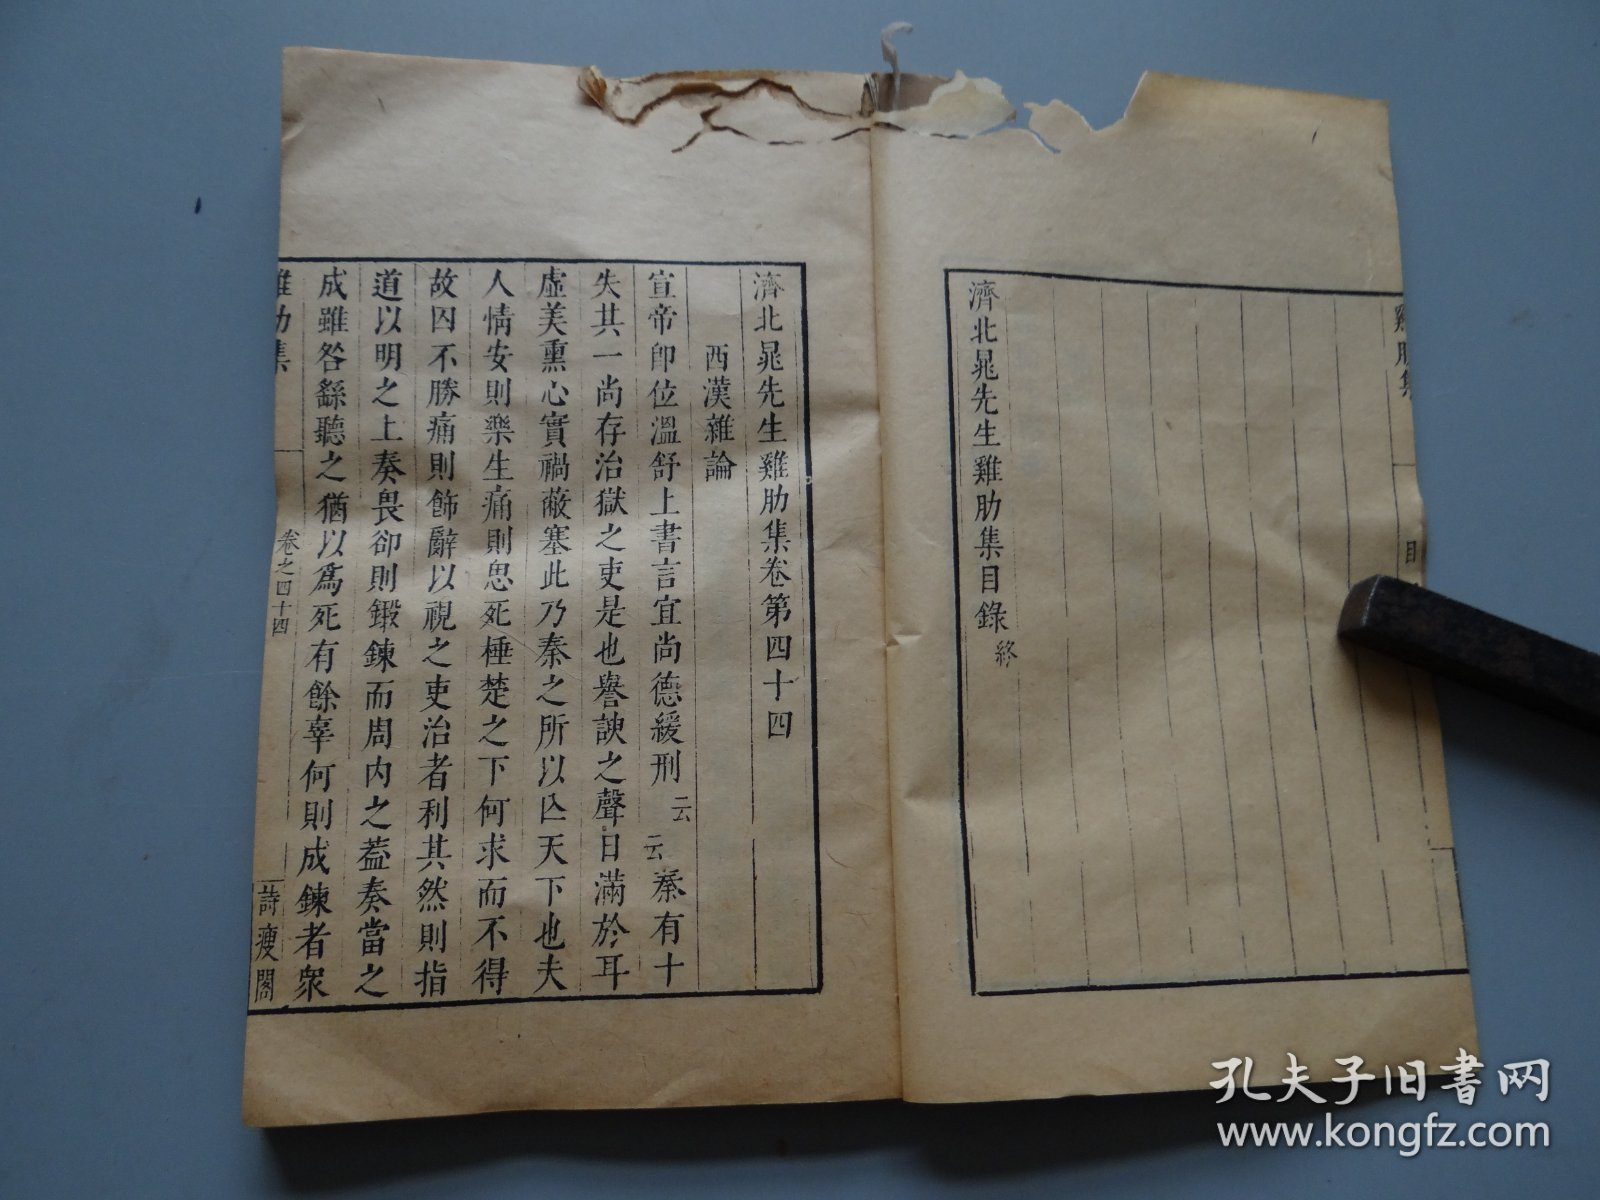 雞肋集
目
濟北晁先生雞肋集目錄終
濟北晁先生雞肋集卷第四十四
西漢雜論
宣帝卽位溫舒上書言宜尚德緩刑云云秦有十
失其一尚存治獄之吏是也譽諛之聲日滿於耳
虛美熏心實禍蔽塞此乃秦之所以亾天下也夫
人情安則樂生痛則思死棰楚之下何求而不得
故囚不勝痛則飾辭以視之吏治者利其然則指
道以明之上奏畏卻則鍛鍊而周内之葢奏當之
成雖咎繇聽之猶以爲死有餘辜何則成鍊者衆
雞肋集
卷之四十四
詩瘦閣
孔夫子旧书网
www.kongfz.com